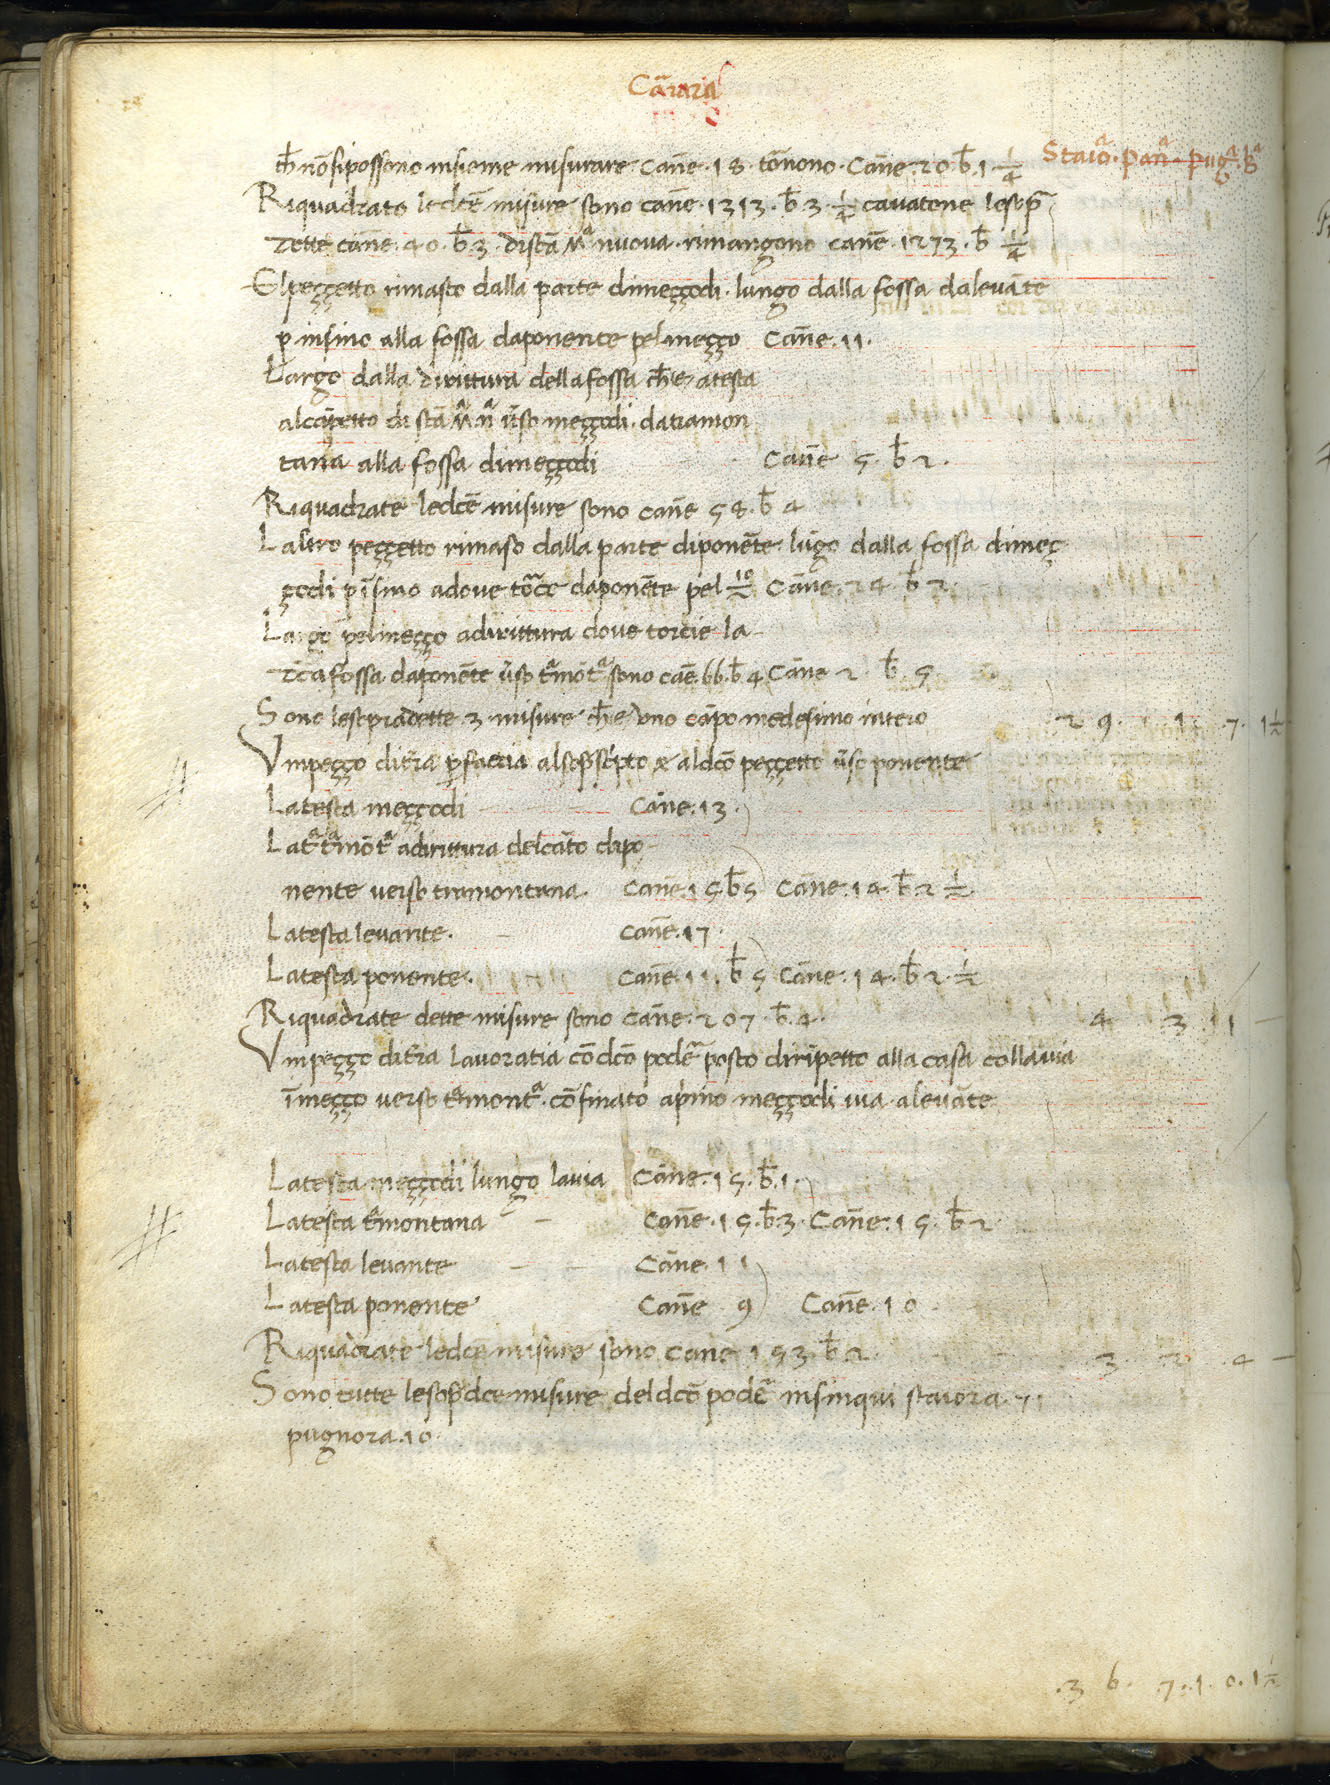 Cārara
Staiōa · Panᵃ · Pugᵃ · Bᵃ
ch̄ nōsipossono insieme misurare Canē · 18 · tōnono · Canē · 20 · b̄ · 1 ¼
Riquadrato ledcē misure sono canē · 1313 · b̄ 3 · ¼ cavatone lesop̄
dette canē · 40 · b̄ 3 · discā Mᵃ nuova · rimangono canē · 1273 · b̄ ¼
El peççetto rimasto dalla parte dimeççodi · lungo dalla fossa dalevāte
p insino alla fossa daponente pel meçço Canē · 11 ·
Largo dalla dirittura della fossa ch̄e atesta
alcāpetto di scā Mᵃ nᵃ v̄so meççodi · datramon
tana alla fossa dimeççodi Canē 5 · b̄ 2 ·
Riquadrate ledcē misure sono canē 58 · b̄ 4
Laltro peççetto rimaso dalla parte diponēte lūgo dalla fossa dimeç
çodi pīsino adove tōrce daponēte pel Canē · 24 b̄ 2
Largo pel meçço adirittura dove torcie la
dcā fossa daponēte v̄so tᵃmōtᵃ sono caē 66 · b̄ 4 Cāne 2 b̄ 5
Sono lesopradette 3 · misure ch̄ e uno cāpo medesimo intero 2 9 · 1 · 7 · 1½
Vnpeçço dit̄ra p̱fattia alsop̄scripto & aldcō peççetto v̄so ponente
Latesta meççodi Cāne · 13 ·
Latᵃ tᵃmōtᵃ adirittura delcāto dipo
nente verso tramontana · Canē · 15 b̄ 5 Cāne · 14 · b̄ 2 ½
Latesta levante · Canē · 17 ·
Latesta ponente · Canē · 11 · b̄ 5 Cāne · 14 · b̄ 2 · ½
Riquadrate dette misure sono Cāne · 207 · b̄ · 4 · 4 3 11 –
Vnpeçço dit̄ra lavoratia cōdcō podē posto dirīpetto alla casa collavia
īmeçço verso tᵃmontᵃ · cōfinato aprimo meççodi via · alevāte
Latesta meççodi lungo lavia Cāne · 15 · b̄ · 1 ·
Latesta tᵃmontana – Canē · 15 · b̄ 3 · Canē · 15 · b̄ 2
Latesta levante Cāne · 11
Latesta ponente Canē 9 Canē · 10 ·
Riquadrate ledcē misure sono Canē 153 · b̄ 2 3 2 · 4 –
Sono tutte lesop̄dce misure deldcō podē insinqui staiora · 7 ·
pugnora · 10 ·
· 3 6 · 7 · 1 · 0 · 1½